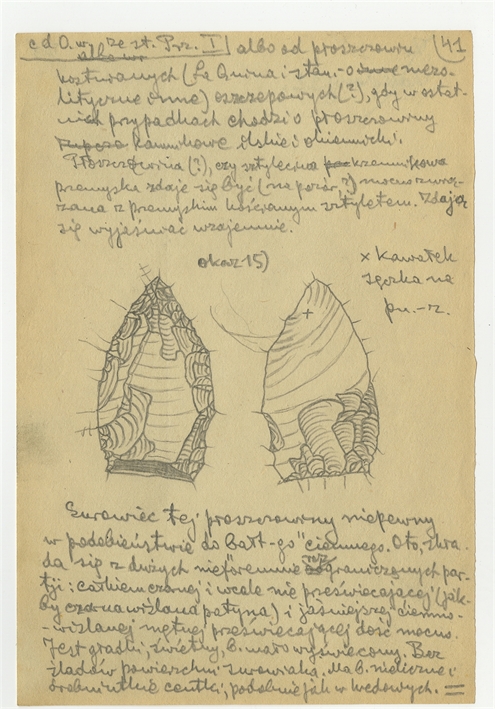 c d O. wy ze st. Prz. I] albo od proszczowin (41
kosturanych (La Quina i stan.-o mezo-
lityczne inne) oszczepowych (?), gdy w ostat-
nich przypadkach chodzi o proszczowiny
kamnikowe
Proszczowina (?), czy sztylecina krzemnikowa
przemyska zdaje się być (na pozór ?) mocno zwią-
zana z przemyskim kościanym sztyletem. Zdają
się wyjaśniać wzajemnie.
okaz 15)
x Kawałek
zgorka na
pn.-z.
Surowiec tej proszczowiny niepewny
w podobieństwie do "bałt-go" ciemnego. Oto, zkła
da się z dużych nieforemnie ograniczonych par-
tji: całkiem czarnej i wcale nie przeświecającej (jak-
by nawiźlana patyna) i jaśniejszej ciemno-
-wiźlanej mętnej przeświecającej dość mocno.
Jest gładki, świetny, b. mało wyświecony. Bez
śladów powierzchni surowiaka. Ma b. nieliczne i
drobniutkie centki, podobnie jak w kredowych. =